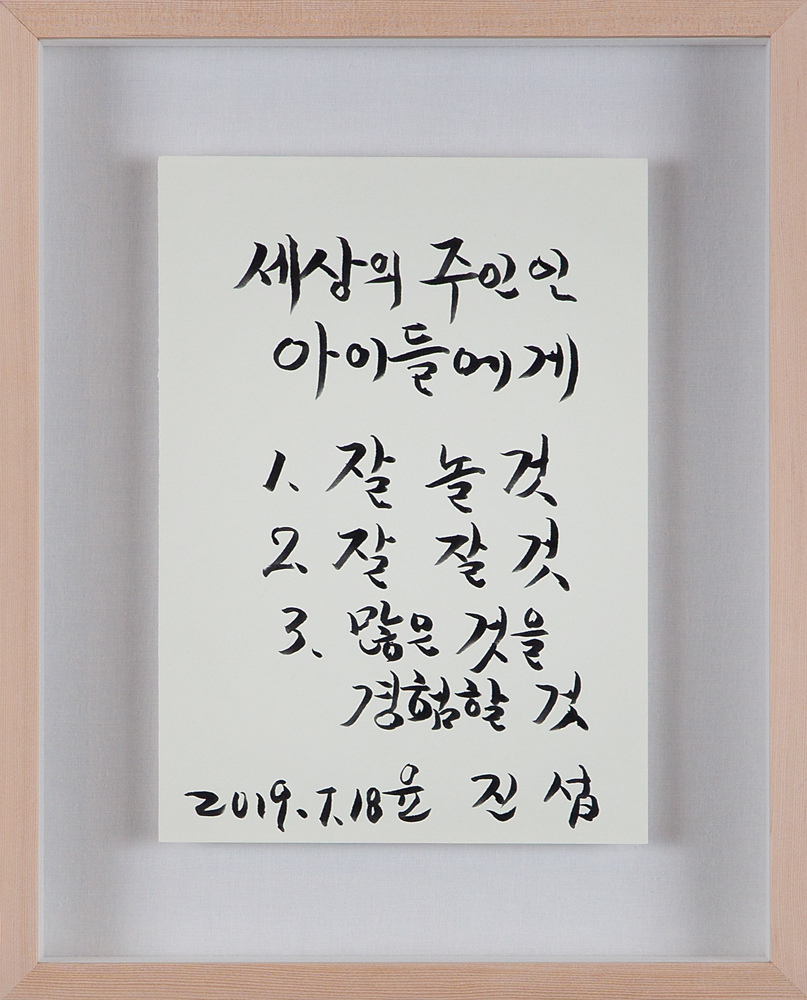 세상의 주인인
아이들에게
1. 잘 놀것
2. 잘 잘 것
3. 많은 것을
경험할 것
2019. 7. 18 윤 진 섭